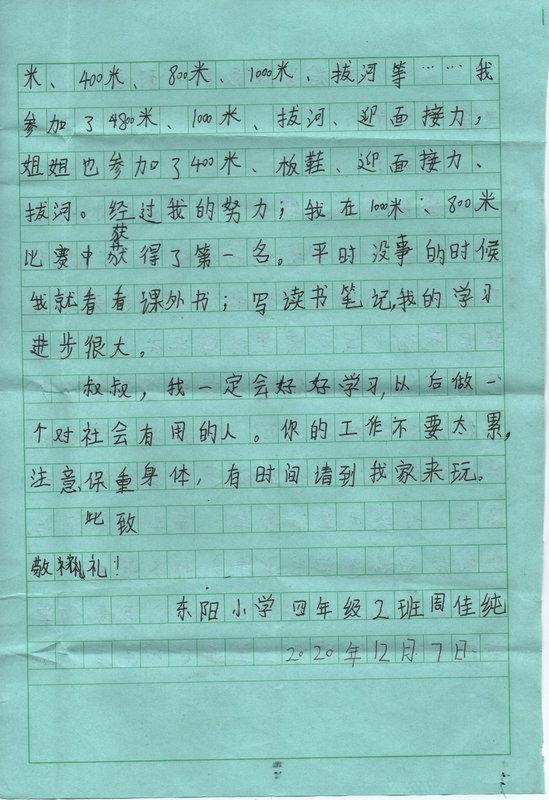 米、400米、800米、1000米、拔河等……我
参加了4800米、1000米、拔河、迎面接力，
姐姐也参加了400米、板鞋、迎面接力、
拔河。经过我的努力；我在1000米、800米
获
比赛中获得了第一名。平时没事的时候
我就看看课外书；写读书笔记，我的学习
进步很大。
叔叔，我一定会好好学习，以后做一
个对社会有用的人。你的工作不要太累，
注意保重身体，有时间请到我家来玩。
此致
敬礼！
东阳小学四年级2班周佳纯
2020年12月7日